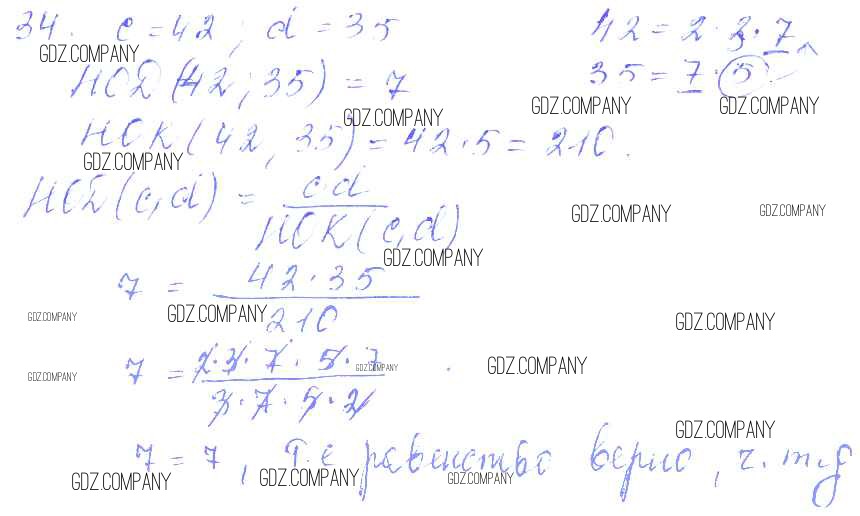 34. c = 42 ; d = 35 42 = 2 · 3 · 7
GDZ.COMPANY
НОД (42 ; 35) = 7 35 = 7 · 5
GDZ.COMPANY GDZ.COMPANY GDZ.COMPANY
НОК (42, 35) = 42 · 5 = 210.
GDZ.COMPANY
НОД (c, d) = c · d / НОК (c, d)
GDZ.COMPANY GDZ.COMPANY
GDZ.COMPANY
7 = 42 · 35 / 210
GDZ.COMPANY GDZ.COMPANY GDZ.COMPANY
7 = 2 · 3 · 7 · 5 · 7 / 3 · 7 · 5 · 2
GDZ.COMPANY GDZ.COMPANY GDZ.COMPANY
GDZ.COMPANY
7 = 7, т.е равенство верно, ч. т. д
GDZ.COMPANY GDZ.COMPANY GDZ.COMPANY